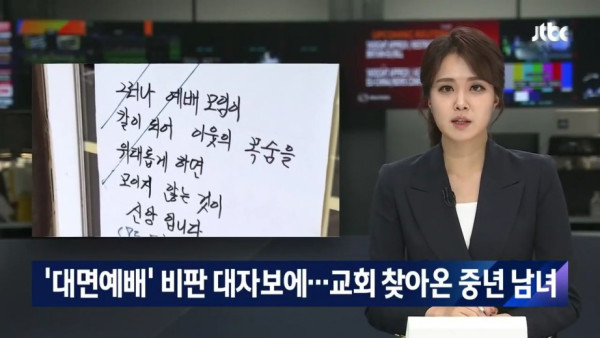 jtbc
그러나 예배 모임이
칼이 되어 이웃의 목숨을
위태롭게 하면
모이지 않는 것이
신앙 입니다
'대면예배' 비판 대자보에…교회 찾아온 중년 남녀